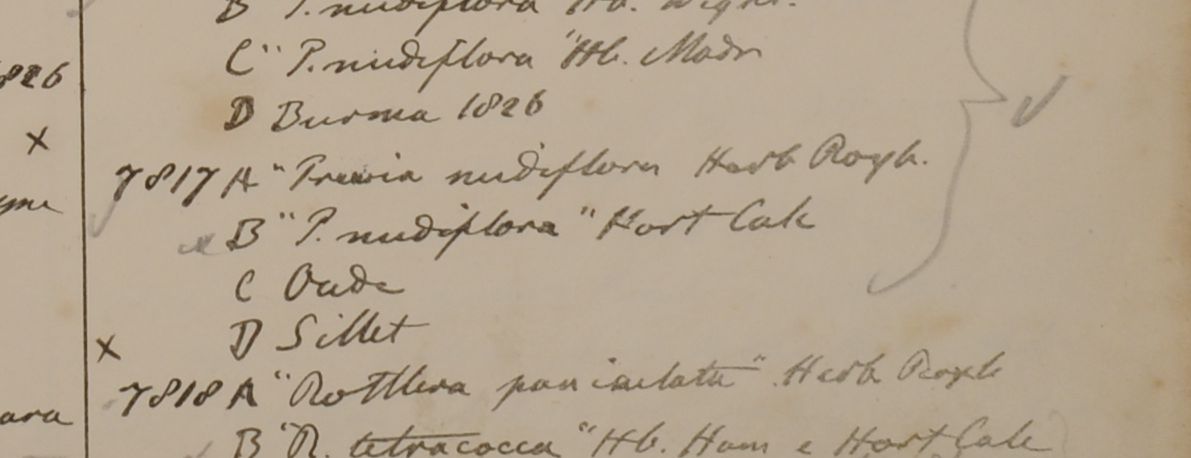 B "P. nudiflora Hb. Wight.
C "P. nudiflora "Hb. Madr
826
D Burma 1826
x
7817 A "Trewia nudiflora Herb Roxb.
B "P. nudiflora "Hort Calc
C Oude
D Sillet
x
7818 A "Rottlera paniculata" Herb Roxb
ara
B "R. tetracocca "Hb. Ham e Hort Calc